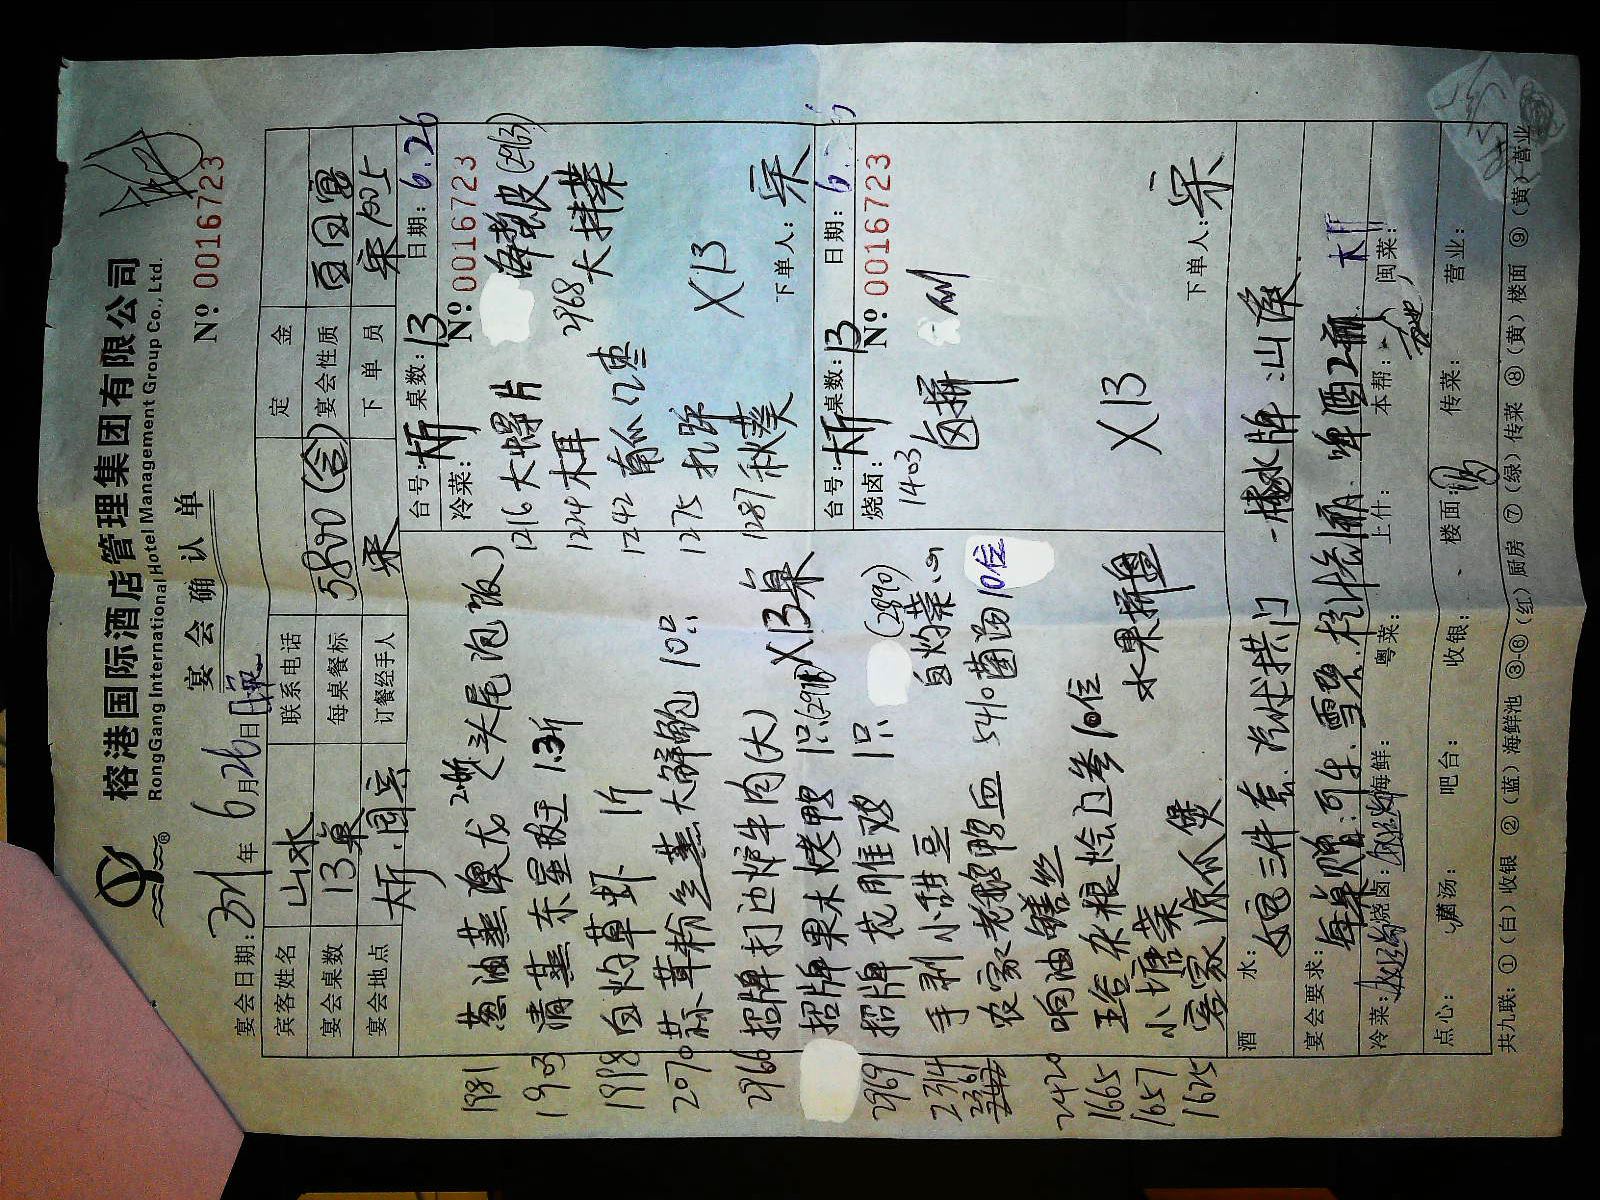 榕港国际酒店管理集团有限公司
RongGang International Hotel Management Group Co., Ltd.
宴会确认单
宴会日期: 年 6月26日 № 0016723
宾客姓名 山水 联系电话 定金
宴会桌数 13桌 每桌餐标 5800(含) 宴会性质 百日宴
宴会地点 大厅 订餐经手人 宋 下单员
1981 葱油蒸澳龙 2斤 (头尾泡饭)
1903 清蒸东星斑 1.3斤
1998 白灼草虾 1斤
2070 蒜茸粉丝蒸大鲜鲍 10只
2966 招牌打边炉牛肉(大)
招牌果木烤鸭 1只 X13桌
2969 招牌花雕鸡 1只
2314 手剥小甜豆 白灼菜心 (2890)
2361 农家老鹅鸭血 5410 菌汤 10位
2420 响油鳝丝
1665 烩辽参 10位
1657 小塘菜 水果拼盘
1625 客家凉瓜煲
台号: 大厅 桌数: 13 日期: 6.26
冷菜: № 0016723
1216 大螺片 海蜇皮 (2963)
1224 木耳 2968 大拌菜
1242 南瓜红枣
1275 扎蹄
1287 秋葵 X13
下单人: 宋
台号: 大厅 桌数: 13 日期: 6.
烧卤: № 0016723
1403 卤拼
X13
下单人: 宋
酒水:
宴会要求: 每桌赠: 可乐、雪碧、橙汁 啤酒2瓶
冷菜: 烧卤: 海鲜: 粤菜: 上什: 本帮: 闽菜:
点心: 汤: 吧台: 收银: 楼面: 传菜: 营业:
共九联: ①(白)收银 ②(蓝)海鲜池 ③-⑥(红)厨房 ⑦(绿)传菜 ⑧(黄)楼面 ⑨(黄)营业